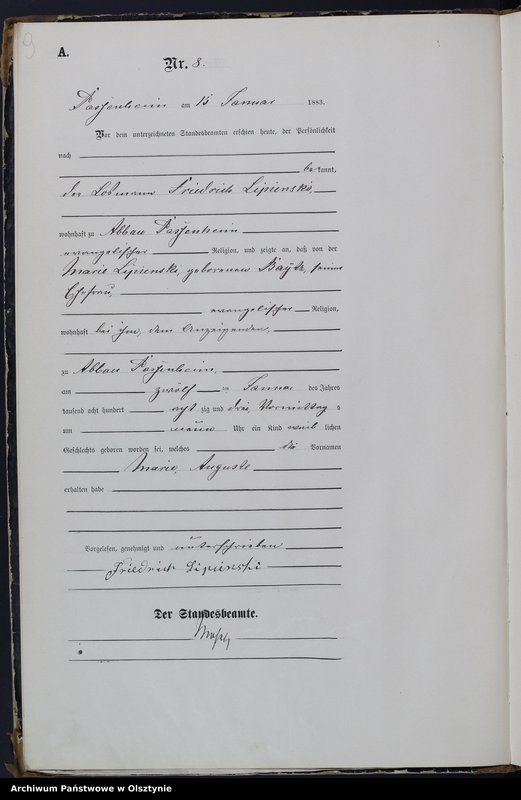 9
A.
Nr. 8.
Passenheim am 15 Januar 1883.
Vor dem unterzeichneten Standesbeamten erschien heute, der Persönlichkeit
nach
be kannt,
der Losmann Friedrich Lipienski,
wohnhaft zu Abbau Passenheim
evangelischer Religion, und zeigte an, daß von der
Marie Lipienski, geborenen seiner
Ehefrau,
evangelischer Religion,
wohnhaft bei ihm, dem Anzeigenden,
zu Abbau Passenheim,
am zwölf ten Januar des Jahres
tausend acht hundert acht zig und drei, Vormittag s
um neun Uhr ein Kind weib lichen
Geschlechts geboren worden sei, welches die Vornamen
Marie, Auguste
erhalten habe
Vorgelesen, genehmigt und unterschrieben
Friedrich Lipienski
Der Standesbeamte.
Archiwum Państwowe w Olsztynie